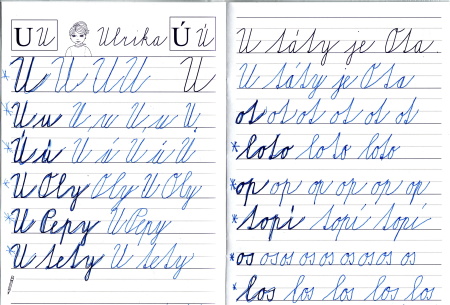 U U Ulrika Ú Ú
U U U U U
U u U u U u U
Ú ú Ú ú Ú ú
U Oly Oly U Oly
U Pepy U Pepy
U tety U tety
U táty je Ota.
U táty je Ota
ot ot ot ot ot ot
loto loto loto
op op op op op op
topí topí topí
os os os os os os os os
los los los los los